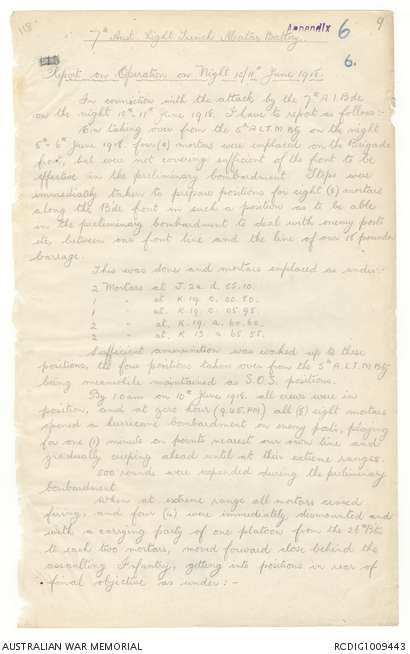 118
Appendix 6
9
7th Aust Light Trench Mortar Battery.
6.
Report on Operation on Night 10/11th June 1918.
In connection with the attack by the 7th A.I. Bde
on the night 10th-11th June 1918. I have to report as follows:-
On taking over from the 5th A.L.T.M. Bty on the night
5th-6th June 1918. four (4) mortars were emplaced on the Brigade
front, but were not covering sufficient of the front to be
effective in the preliminary bombardment. Steps were
immediately taken to prepare positions for eight (8) mortars
along the Bde front in such a position as to be able
in the preliminary bombardment to deal with enemy posts
etc, between our front line and the line of our 18 pounder
barrage.
This was done and mortars emplaced as under:-
2 Mortars at J. 24. d. 85.10.
1 " at K. 19. c. 00.80.
1 " at K. 19. c. 05.95.
2 " at K. 19. a. 60.60.
2 " at K. 13 a. 65.55.
Sufficient ammunition was worked up to these
positions, the four positions taken over from the 5th A.L.T.M. Bty
being meanwhile maintained as S.O.S. positions.
By 1.0 am on 10th June 1918. all crews were in
position, and at zero hour (9.45 PM) all (8) eight mortars
opened a hurricane bombardment on enemy posts, playing
for one (1) minute on points nearest our own line and
gradually creeping ahead until at their extreme ranges.
500 rounds were expended during the preliminary
bombardment.
When at extreme range all mortars ceased
firing, and four (4) were immediately dismounted and
with a carrying party of one platoon from the 26th Btn
to each two mortars, moved forward close behind the
assaulting Infantry, getting into positions in rear of
final objective as under:-
AUSTRALIAN WAR MEMORIAL
RCDIG1009443